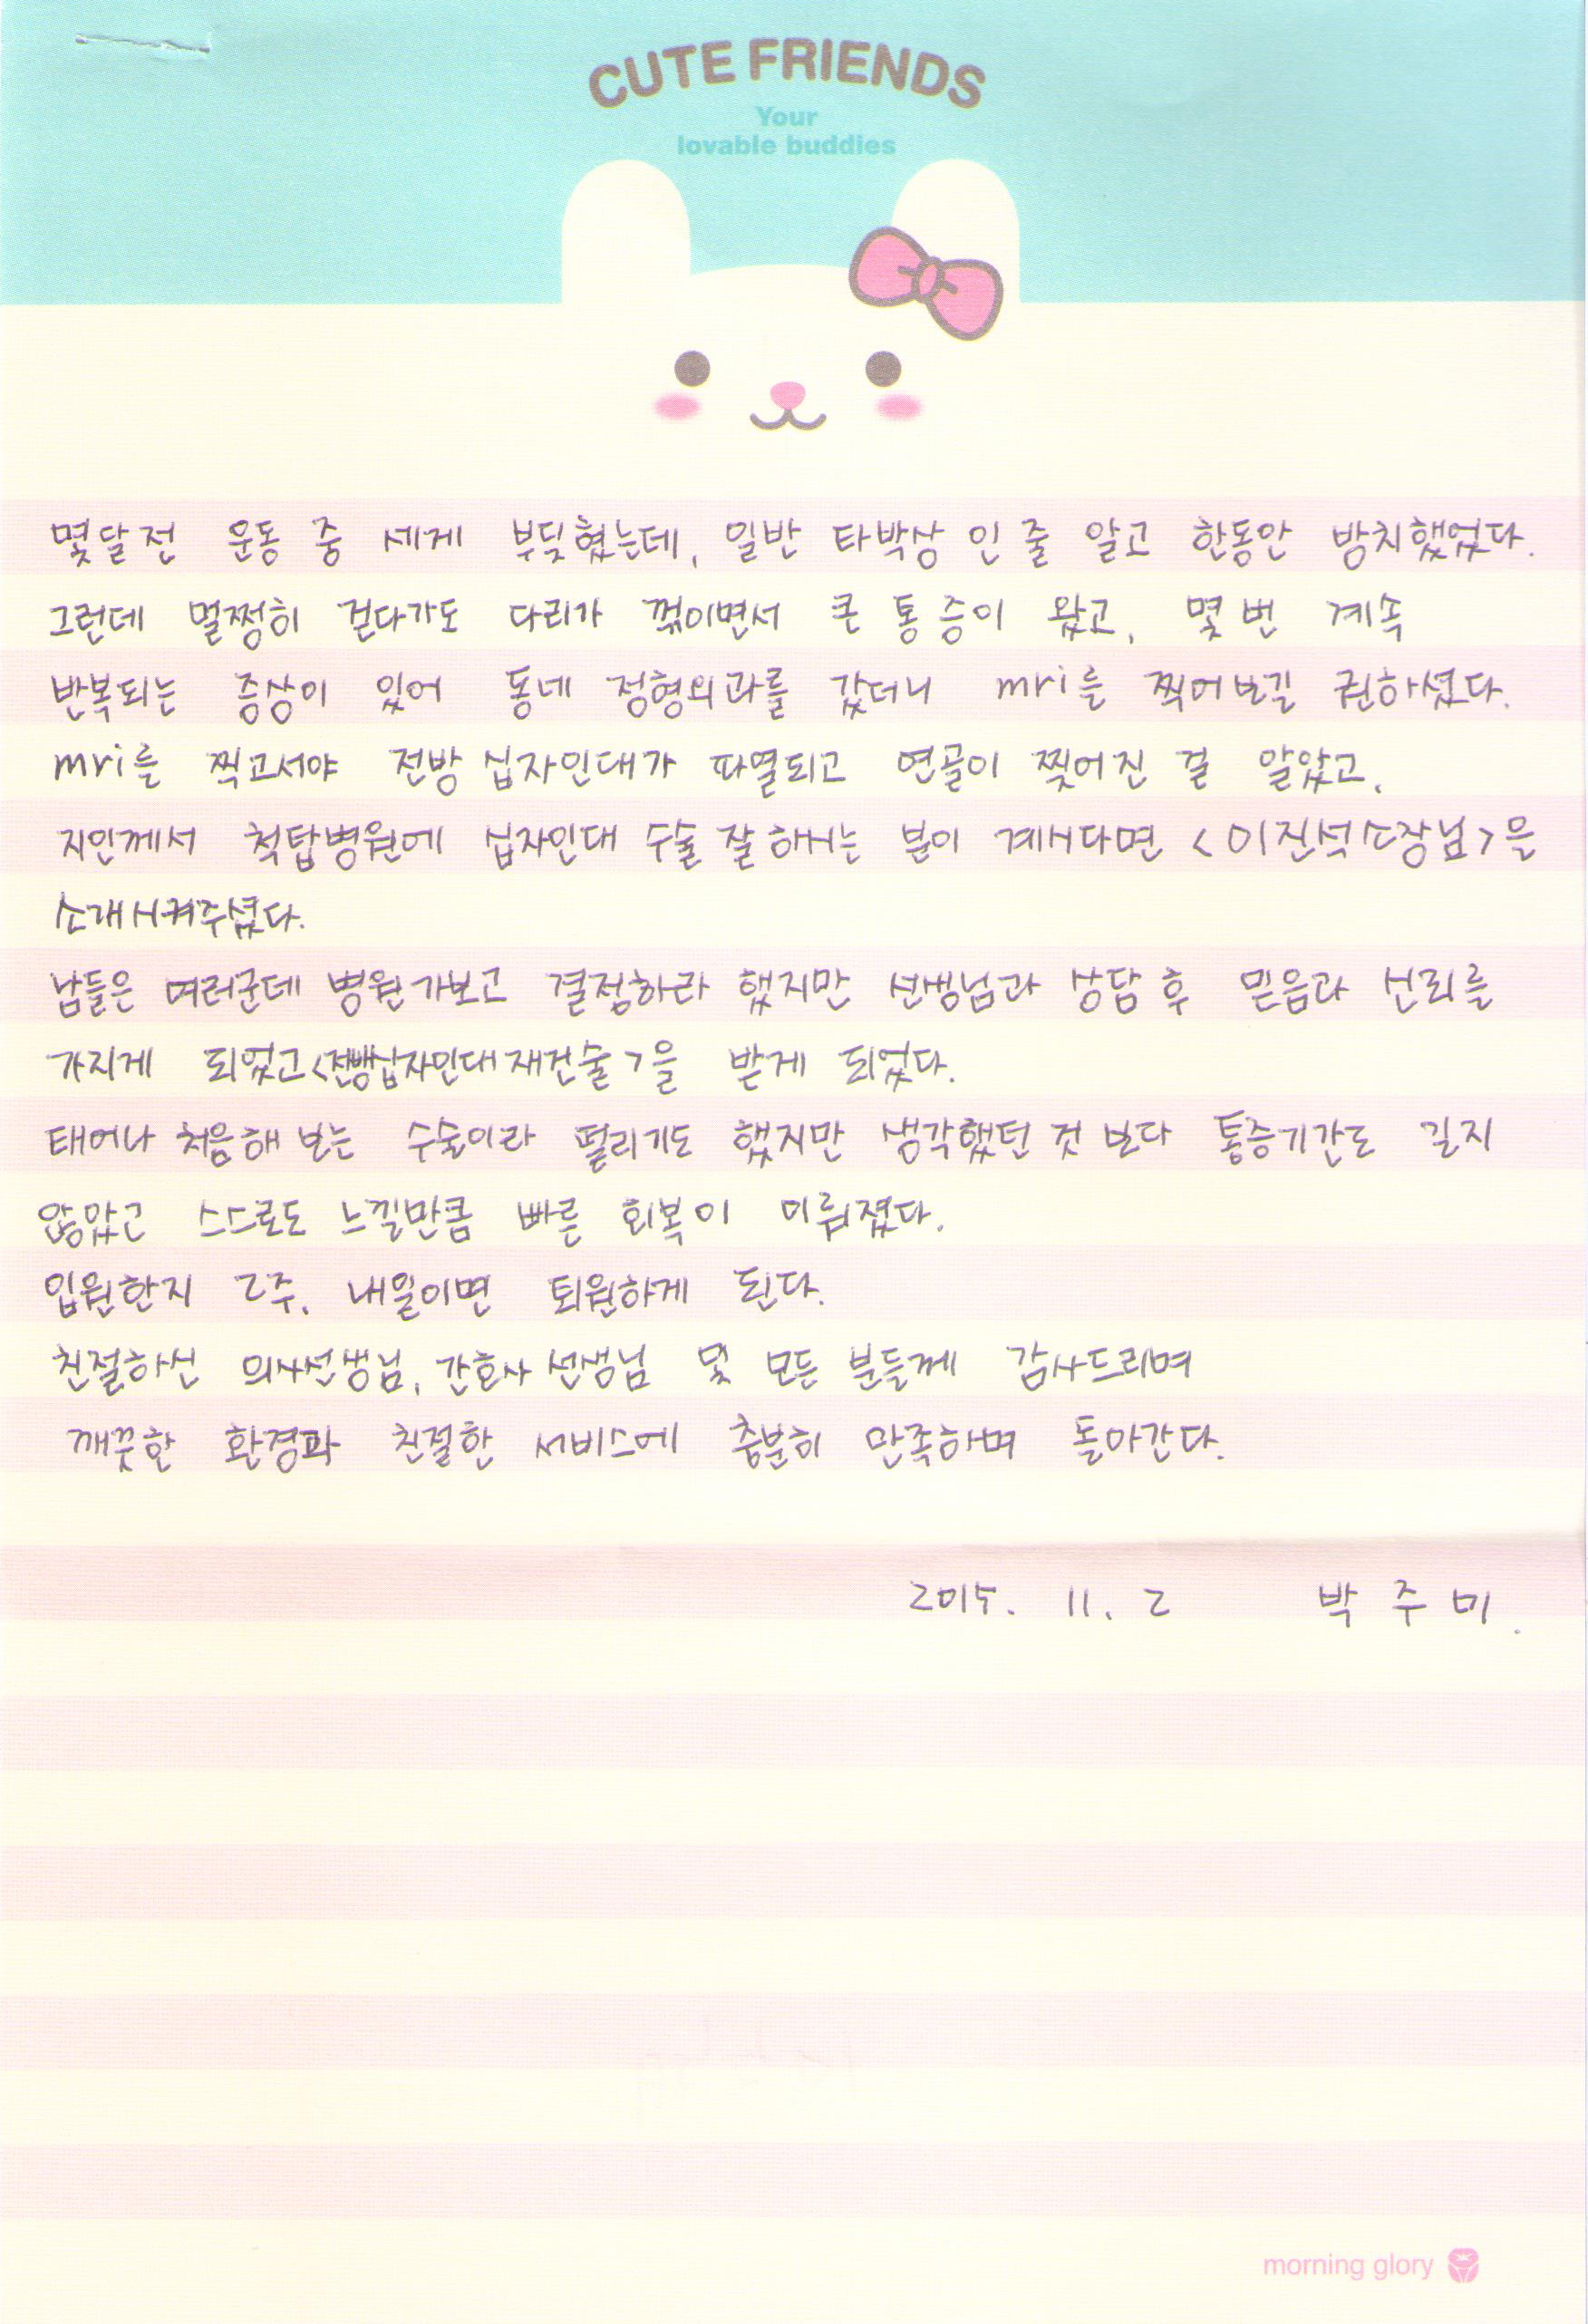 CUTE FRIENDS
Your
lovable buddies
몇달전 운동 중 세게 부딪혔는데, 일반 타박상 인 줄 알고 한동안 방치했었다.
그런데 멀쩡히 걷다가도 다리가 꺾이면서 큰 통증이 왔고, 몇 번 계속
반복되는 증상이 있어 동네 정형외과를 갔더니 mri를 찍어보길 권하셨다.
mri를 찍고서야 전방 십자인대가 파열되고 연골이 찢어진 걸 알았고,
지인께서 척탑병원에 십자인대 수술 잘 하시는 분이 계시다면 <이진석소장님>을
소개시켜주셨다.
남들은 여러군데 병원 가보고 결정하라 했지만 선생님과 상담 후 믿음과 신뢰를
가지게 되었고<전방십자인대재건술>을 받게 되었다.
태어나 처음해 보는 수술이라 떨리기도 했지만 생각했던 것 보다 통증기간도 길지
않았고 스스로도 느낄만큼 빠른 회복이 이뤄졌다.
입원한지 2주, 내일이면 퇴원하게 된다.
친절하신 의사선생님, 간호사 선생님 및 모든 분들께 감사드리며
깨끗한 환경과 친절한 서비스에 충분히 만족하며 돌아간다.
2015. 11. 2 박 주 미.
morning glory